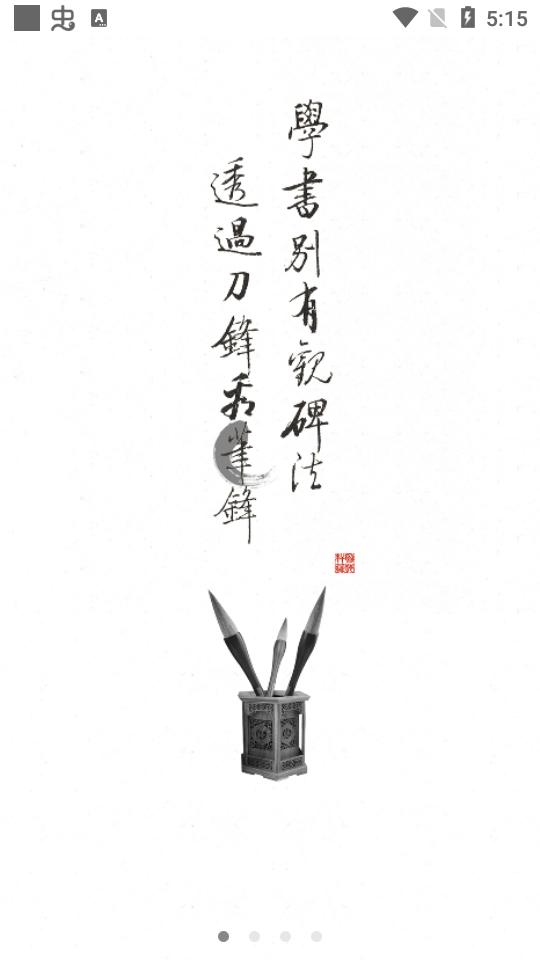 5:15
學書別有觀碑法
透過刀鋒看筆鋒